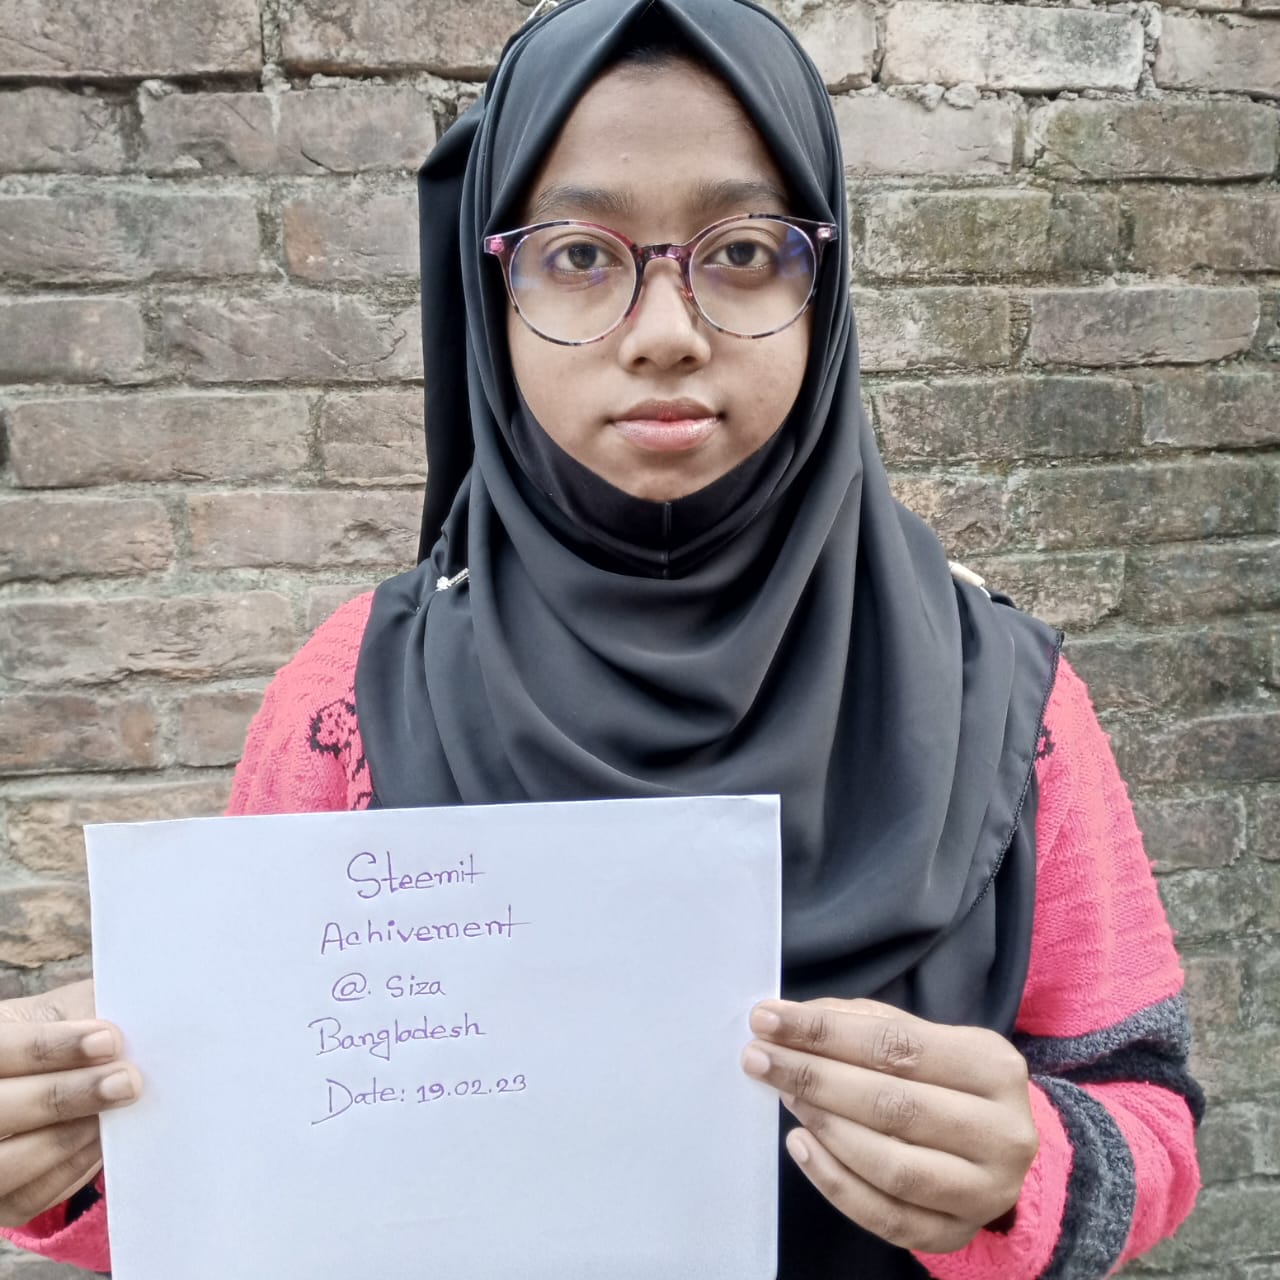 Steemit
Achivement
@. Siza
Bangladesh
Date: 19.02.23